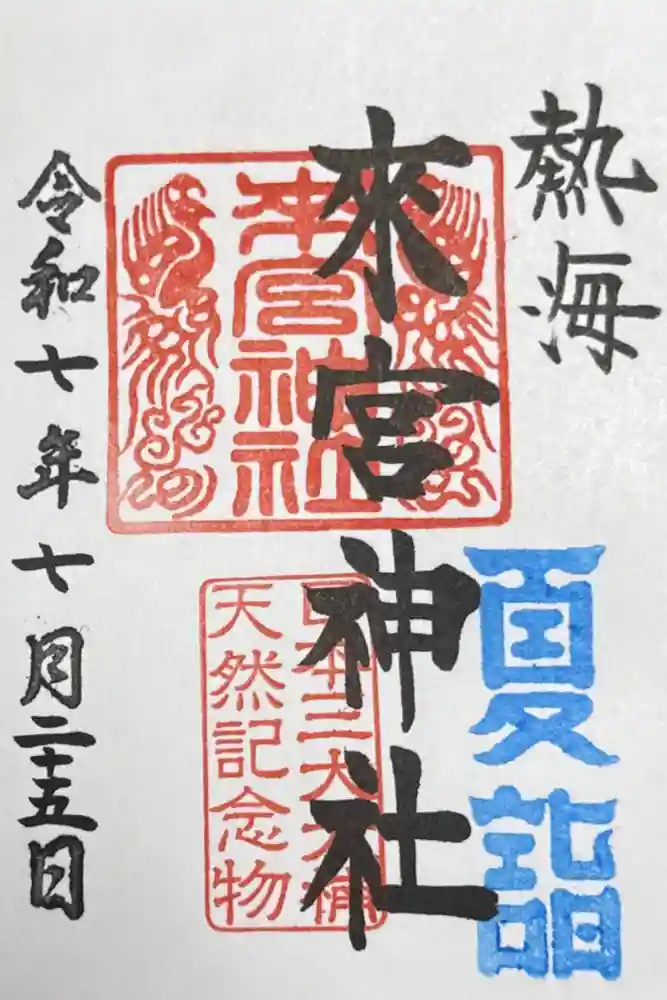 熱海
夏詣
來宮神社
來宮神社
日本三大大楠
天然記念物
令和七年七月二十五日